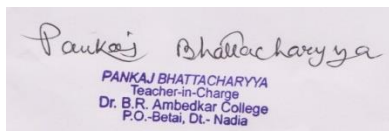 Pankaj Bhattacharyya
PANKAJ BHATTACHARYYA
Teacher-in-Charge
Dr. B.R. Ambedkar College
P.O.-Betai, Dt.- Nadia